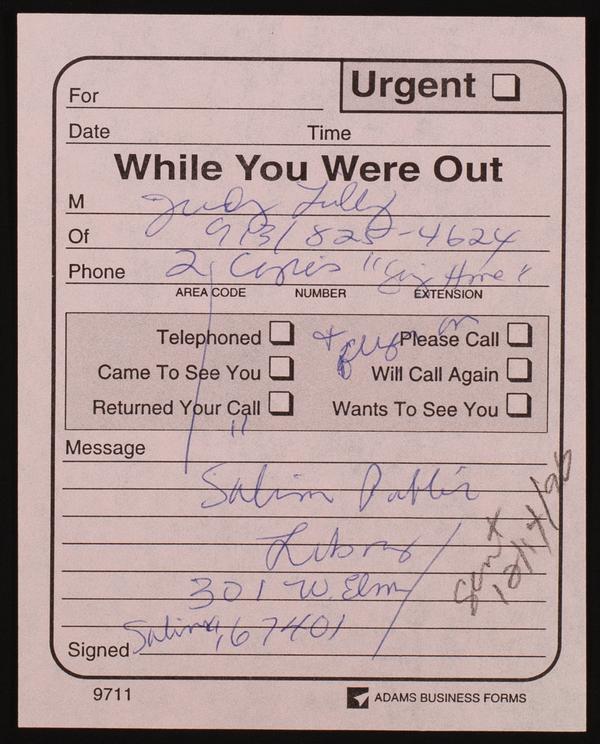 Urgent
For
Date Time
While You Were Out
M Judy Lilly
Of 913/825-4624
Phone 2 Copies "Going Home"
AREA CODE NUMBER EXTENSION
Telephoned + Please Call
Came To See You Will Call Again
Returned Your Call Wants To See You
Message
Salina Public
Library
301 W. Elm
Signed Salina, 67401
Sent 12/17/96
9711 ADAMS BUSINESS FORMS